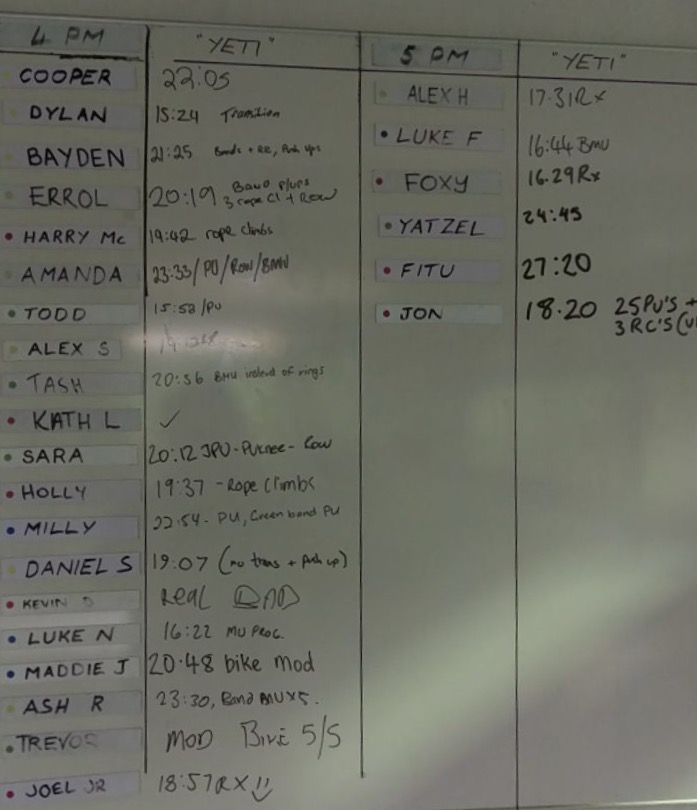 4 PM "YETI"
COOPER 22:05
DYLAN 15:24 Transition
BAYDEN 21:25 Bands + RR, Push ups
ERROL 20:19 Band P/ups
3 rope Cl + Row
HARRY Mc 19:42 rope climbs
AMANDA 23:33/PU/Row/BMU
TODD 15:58/PU
ALEX S
TASH 20:56 BMU instead of rings
KATH L ✓
SARA 20:12 JPU - PU knee - Row
HOLLY 19:37 - Rope Climbs
MILLY 22:54 - PU, Green band PU
DANIEL S 19:07 (no trans + Push up)
KEVIN Real BAD
LUKE N 16:22 MU PROG.
MADDIE J 20:48 bike mod
ASH R 23:30, Band MUX5.
TREVOR MOD BIKE 5/5
JOEL JR 18:57 RX !!
5 PM "YETI"
ALEX H 17.31 Rx
LUKE F 16:44 BMU
FOXY 16.29 Rx
YATZEL 24:45
FITU 27:20
JON 18.20 25PU'S +
3 RC'S